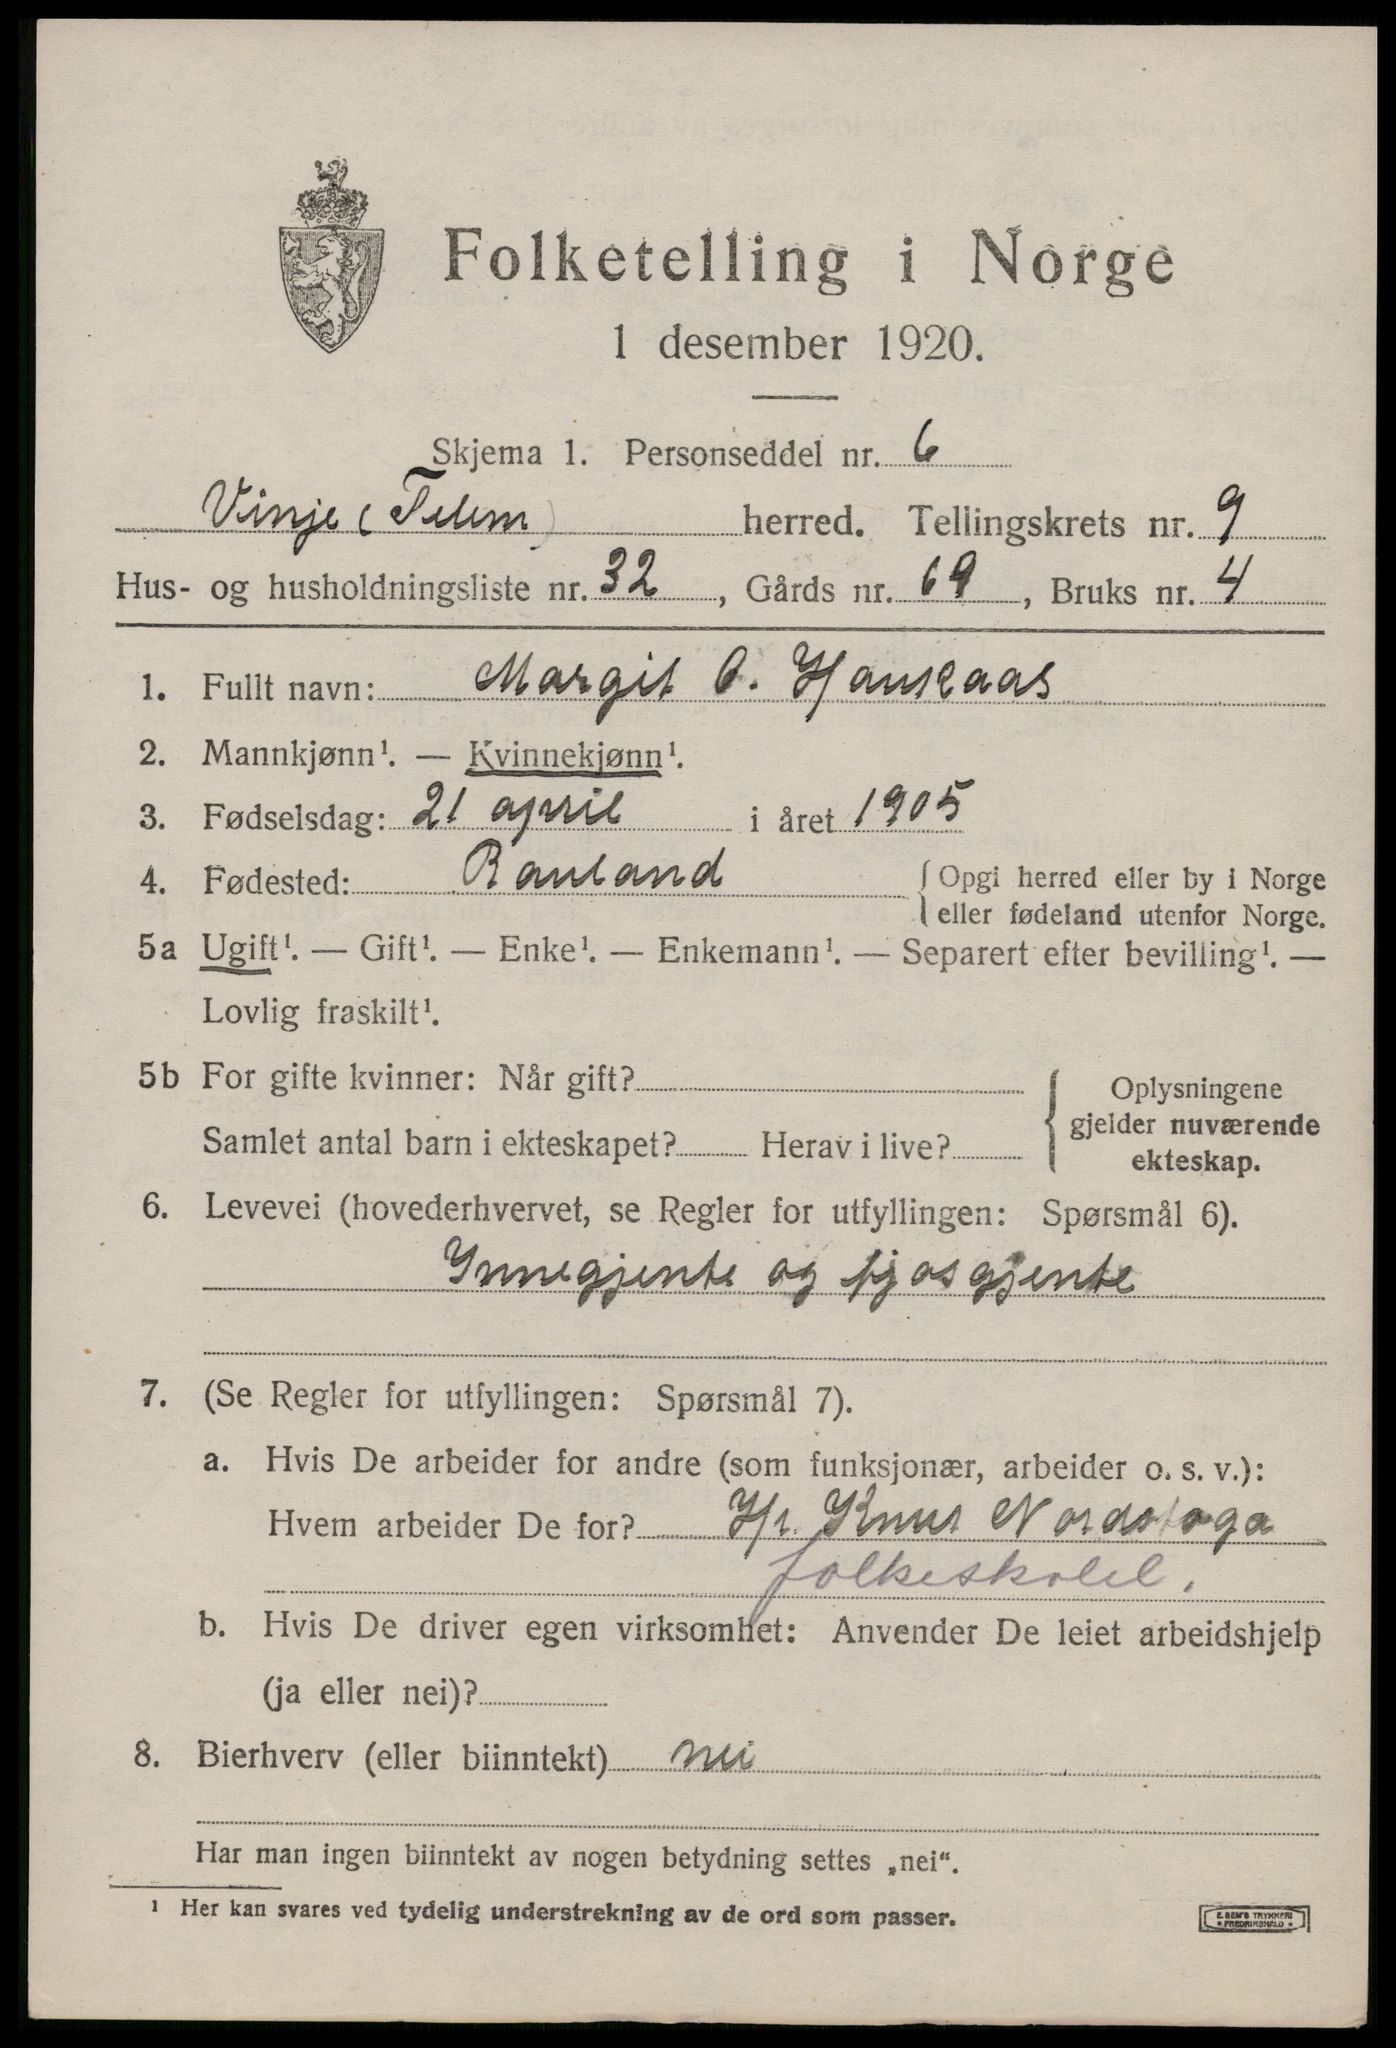 Folketelling i Norge
1 desember 1920.
Skjema 1. Personseddel nr. 6
Vinje (Telem) herred. Tellingskrets nr. 9
Hus- og husholdningsliste nr. 32, Gårds nr. 69, Bruks nr. 4
1. Fullt navn: Margit O. Hauslaas
2. Mannkjønn¹. — Kvinnekjønn¹.
3. Fødselsdag: 21 april i året 1905
4. Fødested: Rauland {Opgi herred eller by i Norge
eller fødeland utenfor Norge.
5a Ugift¹. — Gift¹. — Enke¹. — Enkemann¹. — Separert efter bevilling¹. —
Lovlig fraskilt¹.
5b For gifte kvinner: Når gift?
Samlet antal barn i ekteskapet? Herav i live?
{Oplysningene
gjelder nuværende
ekteskap.
6. Levevei (hovederhvervet, se Regler for utfyllingen: Spørsmål 6).
Innegjente og fjosgjente
7. (Se Regler for utfyllingen: Spørsmål 7).
a. Hvis De arbeider for andre (som funksjonær, arbeider o. s. v.):
Hvem arbeider De for? Hr. Knut Nordstoga
folkeskolel.
b. Hvis De driver egen virksomhet: Anvender De leiet arbeidshjelp
(ja eller nei)?
8. Bierhverv (eller biinntekt) nei
Har man ingen biinntekt av nogen betydning settes „nei“.
¹ Her kan svares ved tydelig understrekning av de ord som passer.
E. SEM'S TRYKKERI
• FREDRIKSHALD •